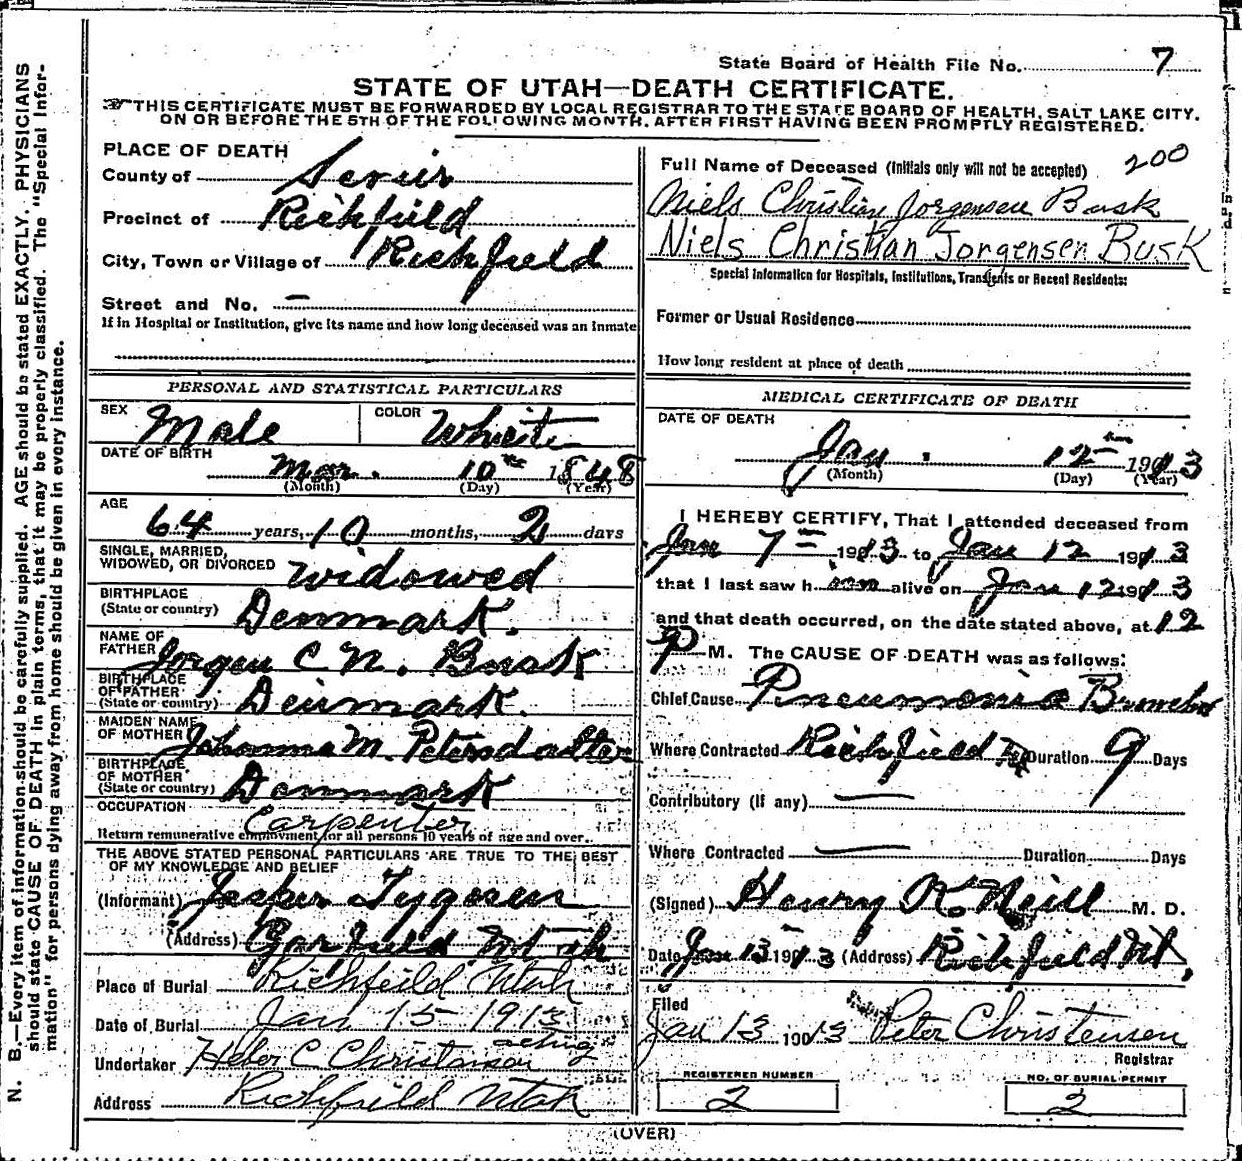 State Board of Health File No. 7
STATE OF UTAH—DEATH CERTIFICATE.
THIS CERTIFICATE MUST BE FORWARDED BY LOCAL REGISTRAR TO THE STATE BOARD OF HEALTH, SALT LAKE CITY,
ON OR BEFORE THE 5TH OF THE FOLLOWING MONTH, AFTER FIRST HAVING BEEN PROMPTLY REGISTERED.
N. B.—Every item of information should be carefully supplied. AGE should be stated EXACTLY. PHYSICIANS
should state CAUSE OF DEATH in plain terms, that it may be properly classified. The "Special Infor-
mation" for persons dying away from home should be given in every instance.
PLACE OF DEATH
County of Sevier
Precinct of Richfield
City, Town or Village of Richfield
Street and No. —
If in Hospital or Institution, give its name and how long deceased was an Inmate
PERSONAL AND STATISTICAL PARTICULARS
SEX Male COLOR White
DATE OF BIRTH Mar. 10th 1848
(Month) (Day) (Year)
AGE
64 years, 10 months, 2 days
SINGLE, MARRIED,
WIDOWED, OR DIVORCED widowed
BIRTHPLACE
(State or country) Denmark.
NAME OF
FATHER Jorgen C N. Busk
BIRTHPLACE
OF FATHER
(State or country) Denmark.
MAIDEN NAME
OF MOTHER Johanna M. Petersdatter
BIRTHPLACE
OF MOTHER
(State or country) Denmark
OCCUPATION Carpenter
Return remunerative employment for all persons 10 years of age and over.
THE ABOVE STATED PERSONAL PARTICULARS ARE TRUE TO THE BEST
OF MY KNOWLEDGE AND BELIEF
(Informant) Tygesen
(Address) Garfield Utah
Place of Burial Richfeild Utah
Date of Burial Jan 15 1913
acting
Undertaker Heber C Christensen
Address Richfeild Utah
Full Name of Deceased (Initials only will not be accepted) 200
Niels Christian Jorgensen Busk
Niels Christian Jorgensen Busk
Special Information for Hospitals, Institutions, Transients or Recent Residents:
Former or Usual Residence
How long resident at place of death
MEDICAL CERTIFICATE OF DEATH
DATE OF DEATH
Jan. 12th 1913
(Month) (Day) (Year)
I HEREBY CERTIFY, That I attended deceased from
Jan 7th 1913 to Jan 12 1913
that I last saw him alive on Jan 12 1913
and that death occurred, on the date stated above, at 12
P M. The CAUSE OF DEATH was as follows:
Chief Cause Pneumonia
Where Contracted Richfield Duration 9 Days
Contributory (If any) —
Where Contracted — Duration Days
(Signed) Henry K. Neill M. D.
Date Jan 13 1913 (Address) Richfield Ut.
Filed
Jan 13 1913 Peter Christensen
Registrar
REGISTERED NUMBER
2
NO. OF BURIAL PERMIT
2
(OVER)